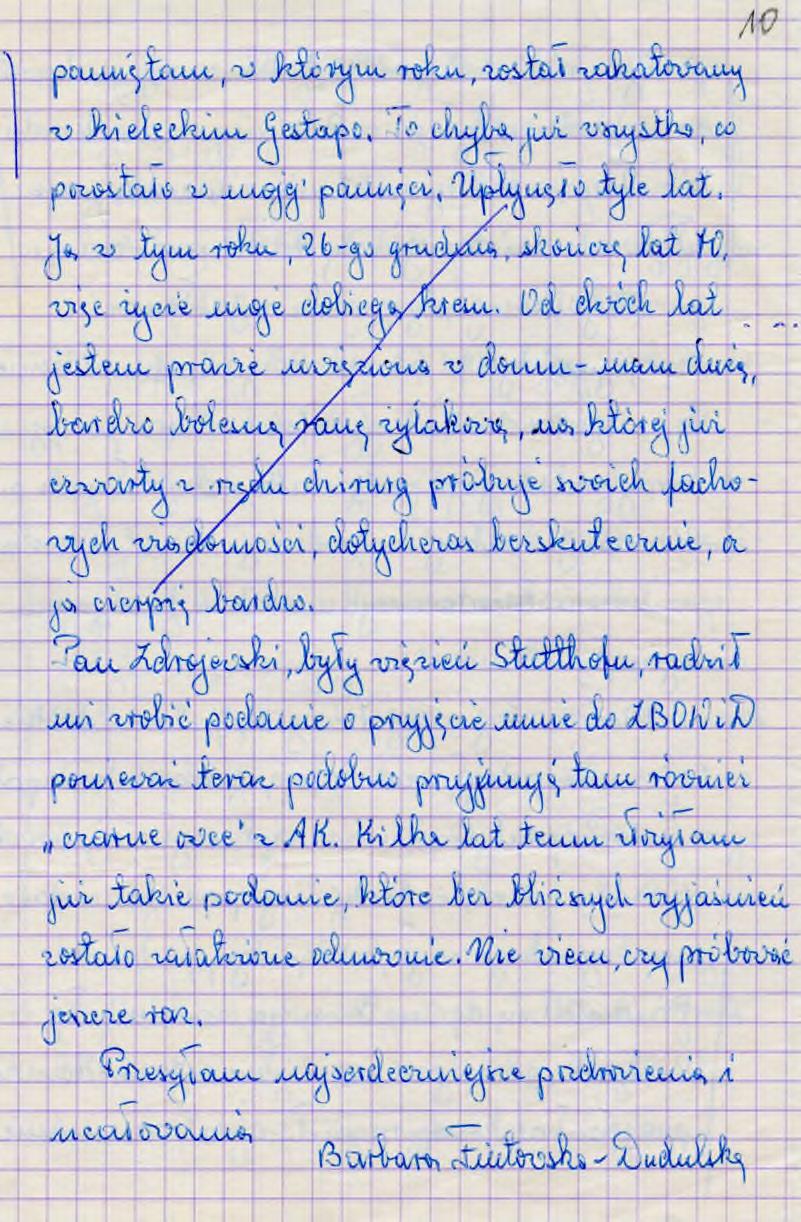 10
pamiętam, w którym roku, został zakatowany
w kieleckim Gestapo. To chyba już wszystko, co
pozostało w mojej pamięci. Upłynęło tyle lat.
Ja w tym roku, 26-go grudnia, skończę lat 70,
więc życie moje dobiega kresu. Od dwóch lat
jestem prawie uwięziona w domu - mam dużą,
bardzo bolesną ranę żylakową, na której już
czwarty z rzędu chirurg próbuje swoich facho-
wych wiadomości, dotychczas bezskutecznie, a
ja cierpię bardzo.
Pan Zdrojewski, były więzień Stutthofu, radził
mi zrobić podanie o przyjęcie mnie do ZBOWiD
ponieważ teraz podobno przyjmują tam również
„czarne owce" z AK. Kilka lat temu złożyłam
już takie podanie, które bez bliższych wyjaśnień
zostało załatwione odmownie. Nie wiem, czy próbować
jeszcze raz.
Przesyłam najserdeczniejsze pozdrowienia i
ucałowania
Barbara - Dudulska